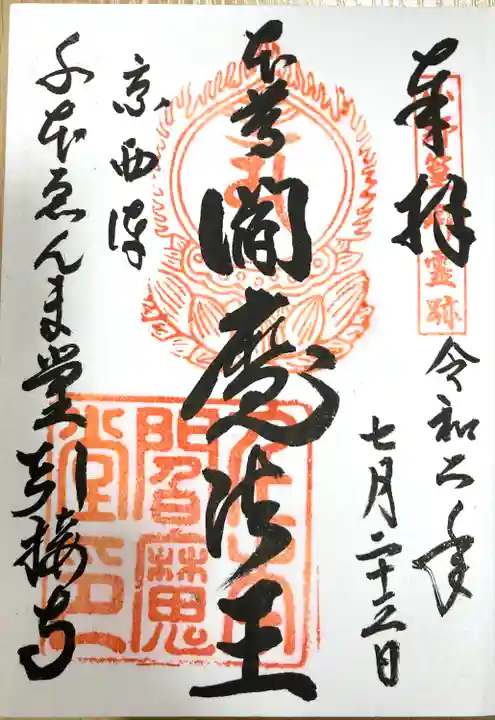 奉拝
靈跡
令和六年
七月二十三日
本尊 閻魔法王
閻魔
堂印
京西陣
千本ゑんま堂引接寺